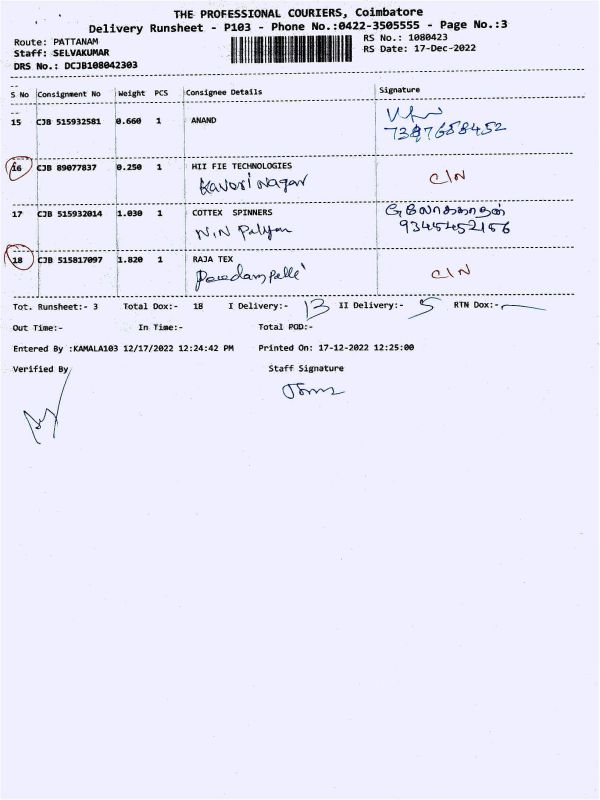 THE PROFESSIONAL COURIERS, Coimbatore
Delivery Runsheet - P103 - Phone No.:0422-3505555 - Page No.:3
Route: PATTANAM RS No.: 1080423
Staff: SELVAKUMAR RS Date: 17-Dec-2022
DRS No.: DCJB108042303
S No Consignment No Weight PCS Consignee Details Signature
15 CJB 515932581 0.660 1 ANAND
7397658452
16 CJB 89077837 0.250 1 HII FIE TECHNOLOGIES
Kaveri Nagar C/N
17 CJB 515932014 1.030 1 COTTEX SPINNERS
N.N Palyam 9345452156
18 CJB 515817097 1.820 1 RAJA TEX
C/N
Tot. Runsheet:- 3 Total Dox:- 18 I Delivery:- 13 II Delivery:- 5 RTN Dox:-
Out Time:- In Time:- Total POD:-
Entered By :KAMALA103 12/17/2022 12:24:42 PM Printed On: 17-12-2022 12:25:00
Verified By Staff Signature